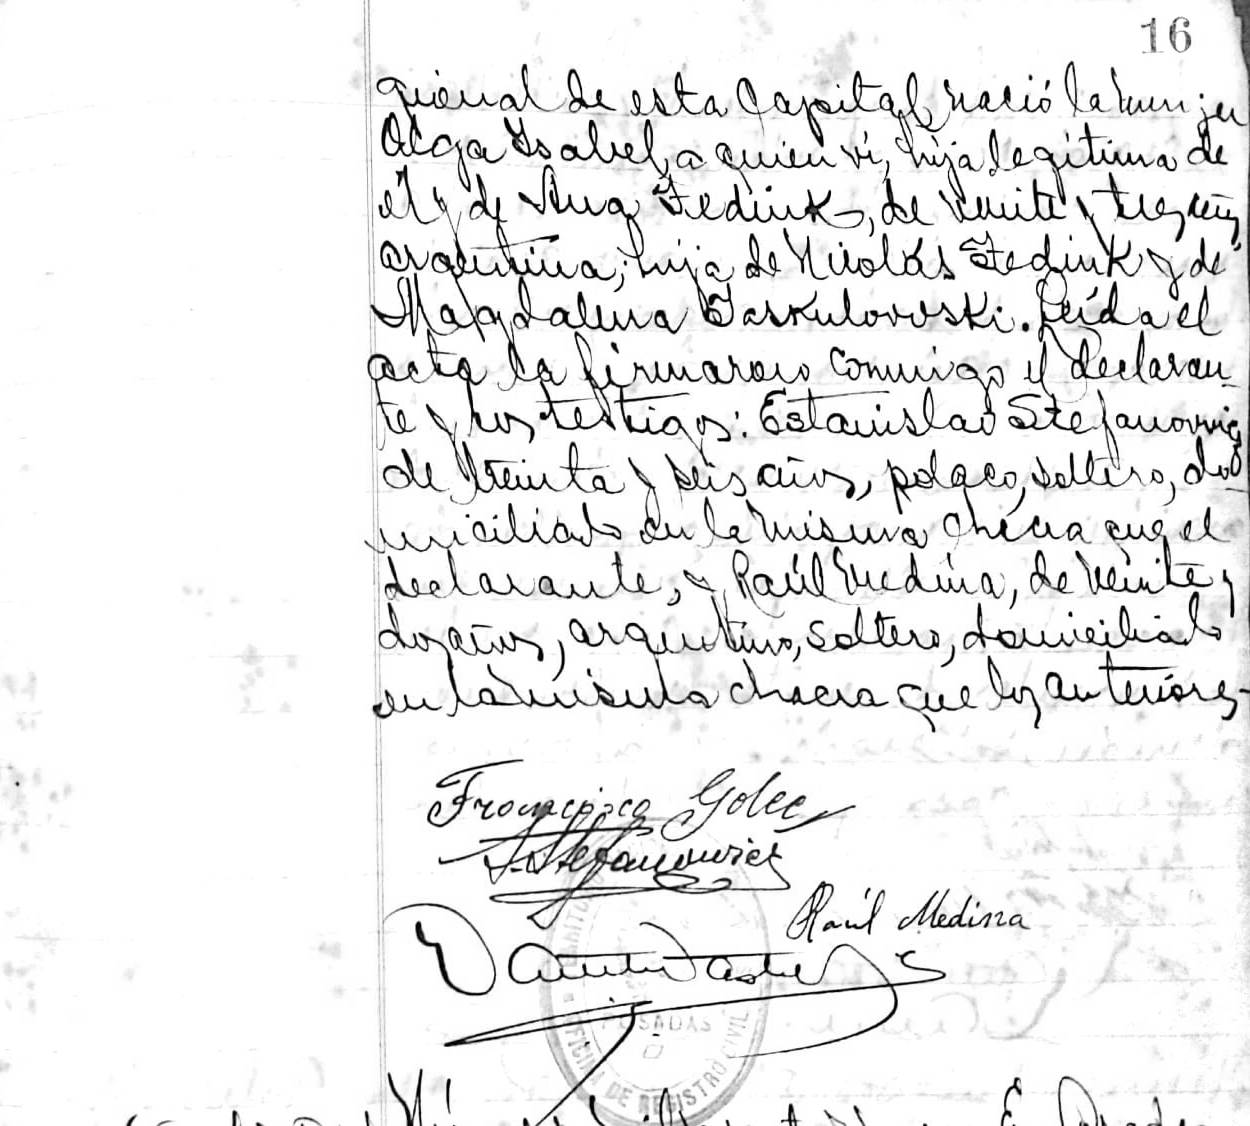 16
gional de esta Capital, nació la mujer
Olga Isabel, a quien ví, hija legítima de
él y de Ana Fediuk, de veinte y tres años
argentina, hija de Nicolás Fediuk y de
Magdalena Jaskulovoski. Leída el
acta la firmaron conmigo el declaran-
te y los testigos: Estanislao Stefanovvicz
de treinta y seis años, polaco, soltero, do-
miciliado en la misma chacra que el
declarante, y Raúl Medina, de veinte y
dos años, argentino, soltero, domiciliado
en la misma chacra que los anteriores-
Francisco Golec
Stefanowicz
Raúl Medina
POSADAS
OFICINA DE REGISTRO CIVIL